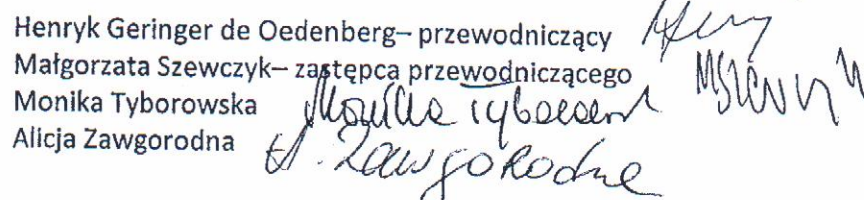 Henryk Geringer de Oedenberg– przewodniczący
Małgorzata Szewczyk– zastępca przewodniczącego
Monika Tyborowska
Alicja Zawgorodna
A. Zawgorodna